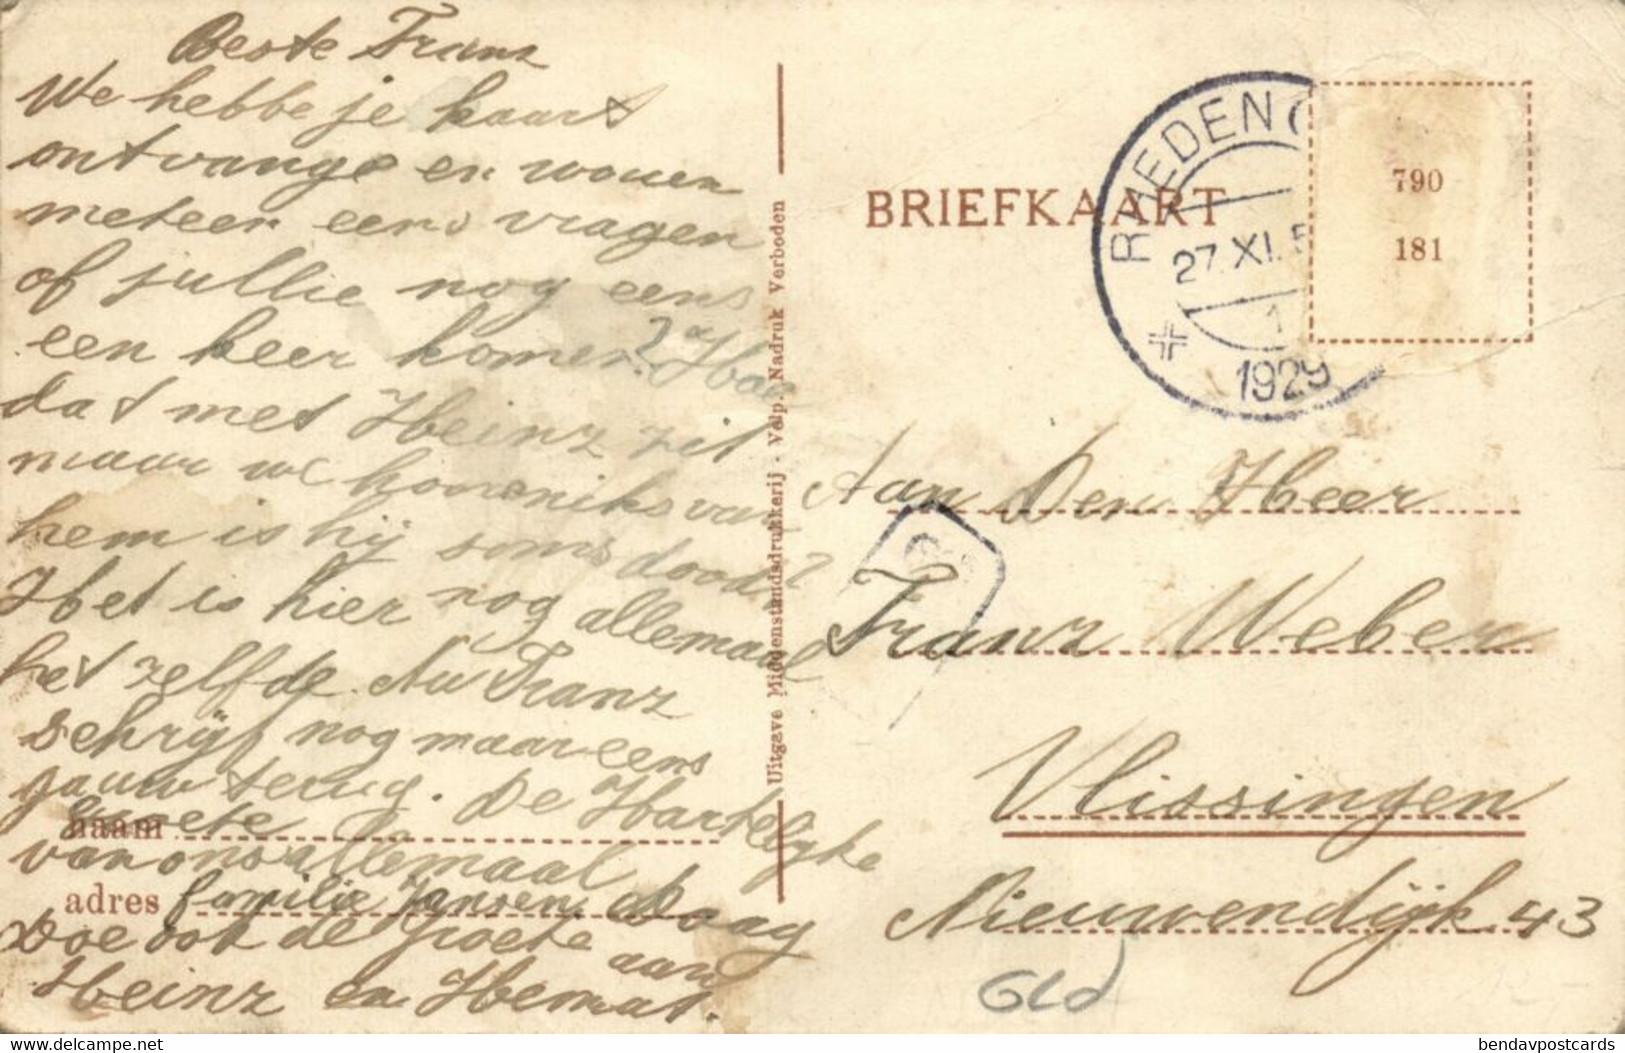 Beste Franz
We hebbe je kaart
ontvange en wouen
meteen eens vragen
of jullie nog eens
een keer komen? Hoe
dat met Heinz zit
maar we hooren niks van
hem is hij soms dood?
Het is hier nog allemaal
het zelfde. Nu Franz
schrijf nog maar eens
gauw terug. De Hartelijke
Groete
naam
van ons allemaal
adres
familie Jansen. Daag
Doe ook de groete aan
Heinz en Hemat.
Uitgave Middenstandsdrukkerij - Velp. Nadruk Verboden
BRIEFKAART
RHEDEN (
27.XI. 5
1
1929
790
181
Aan Den Heer
Franz Weber
Vlissingen
Nieuwendijk 43
Gld
https://www.delcampe.net
bendavpostcards